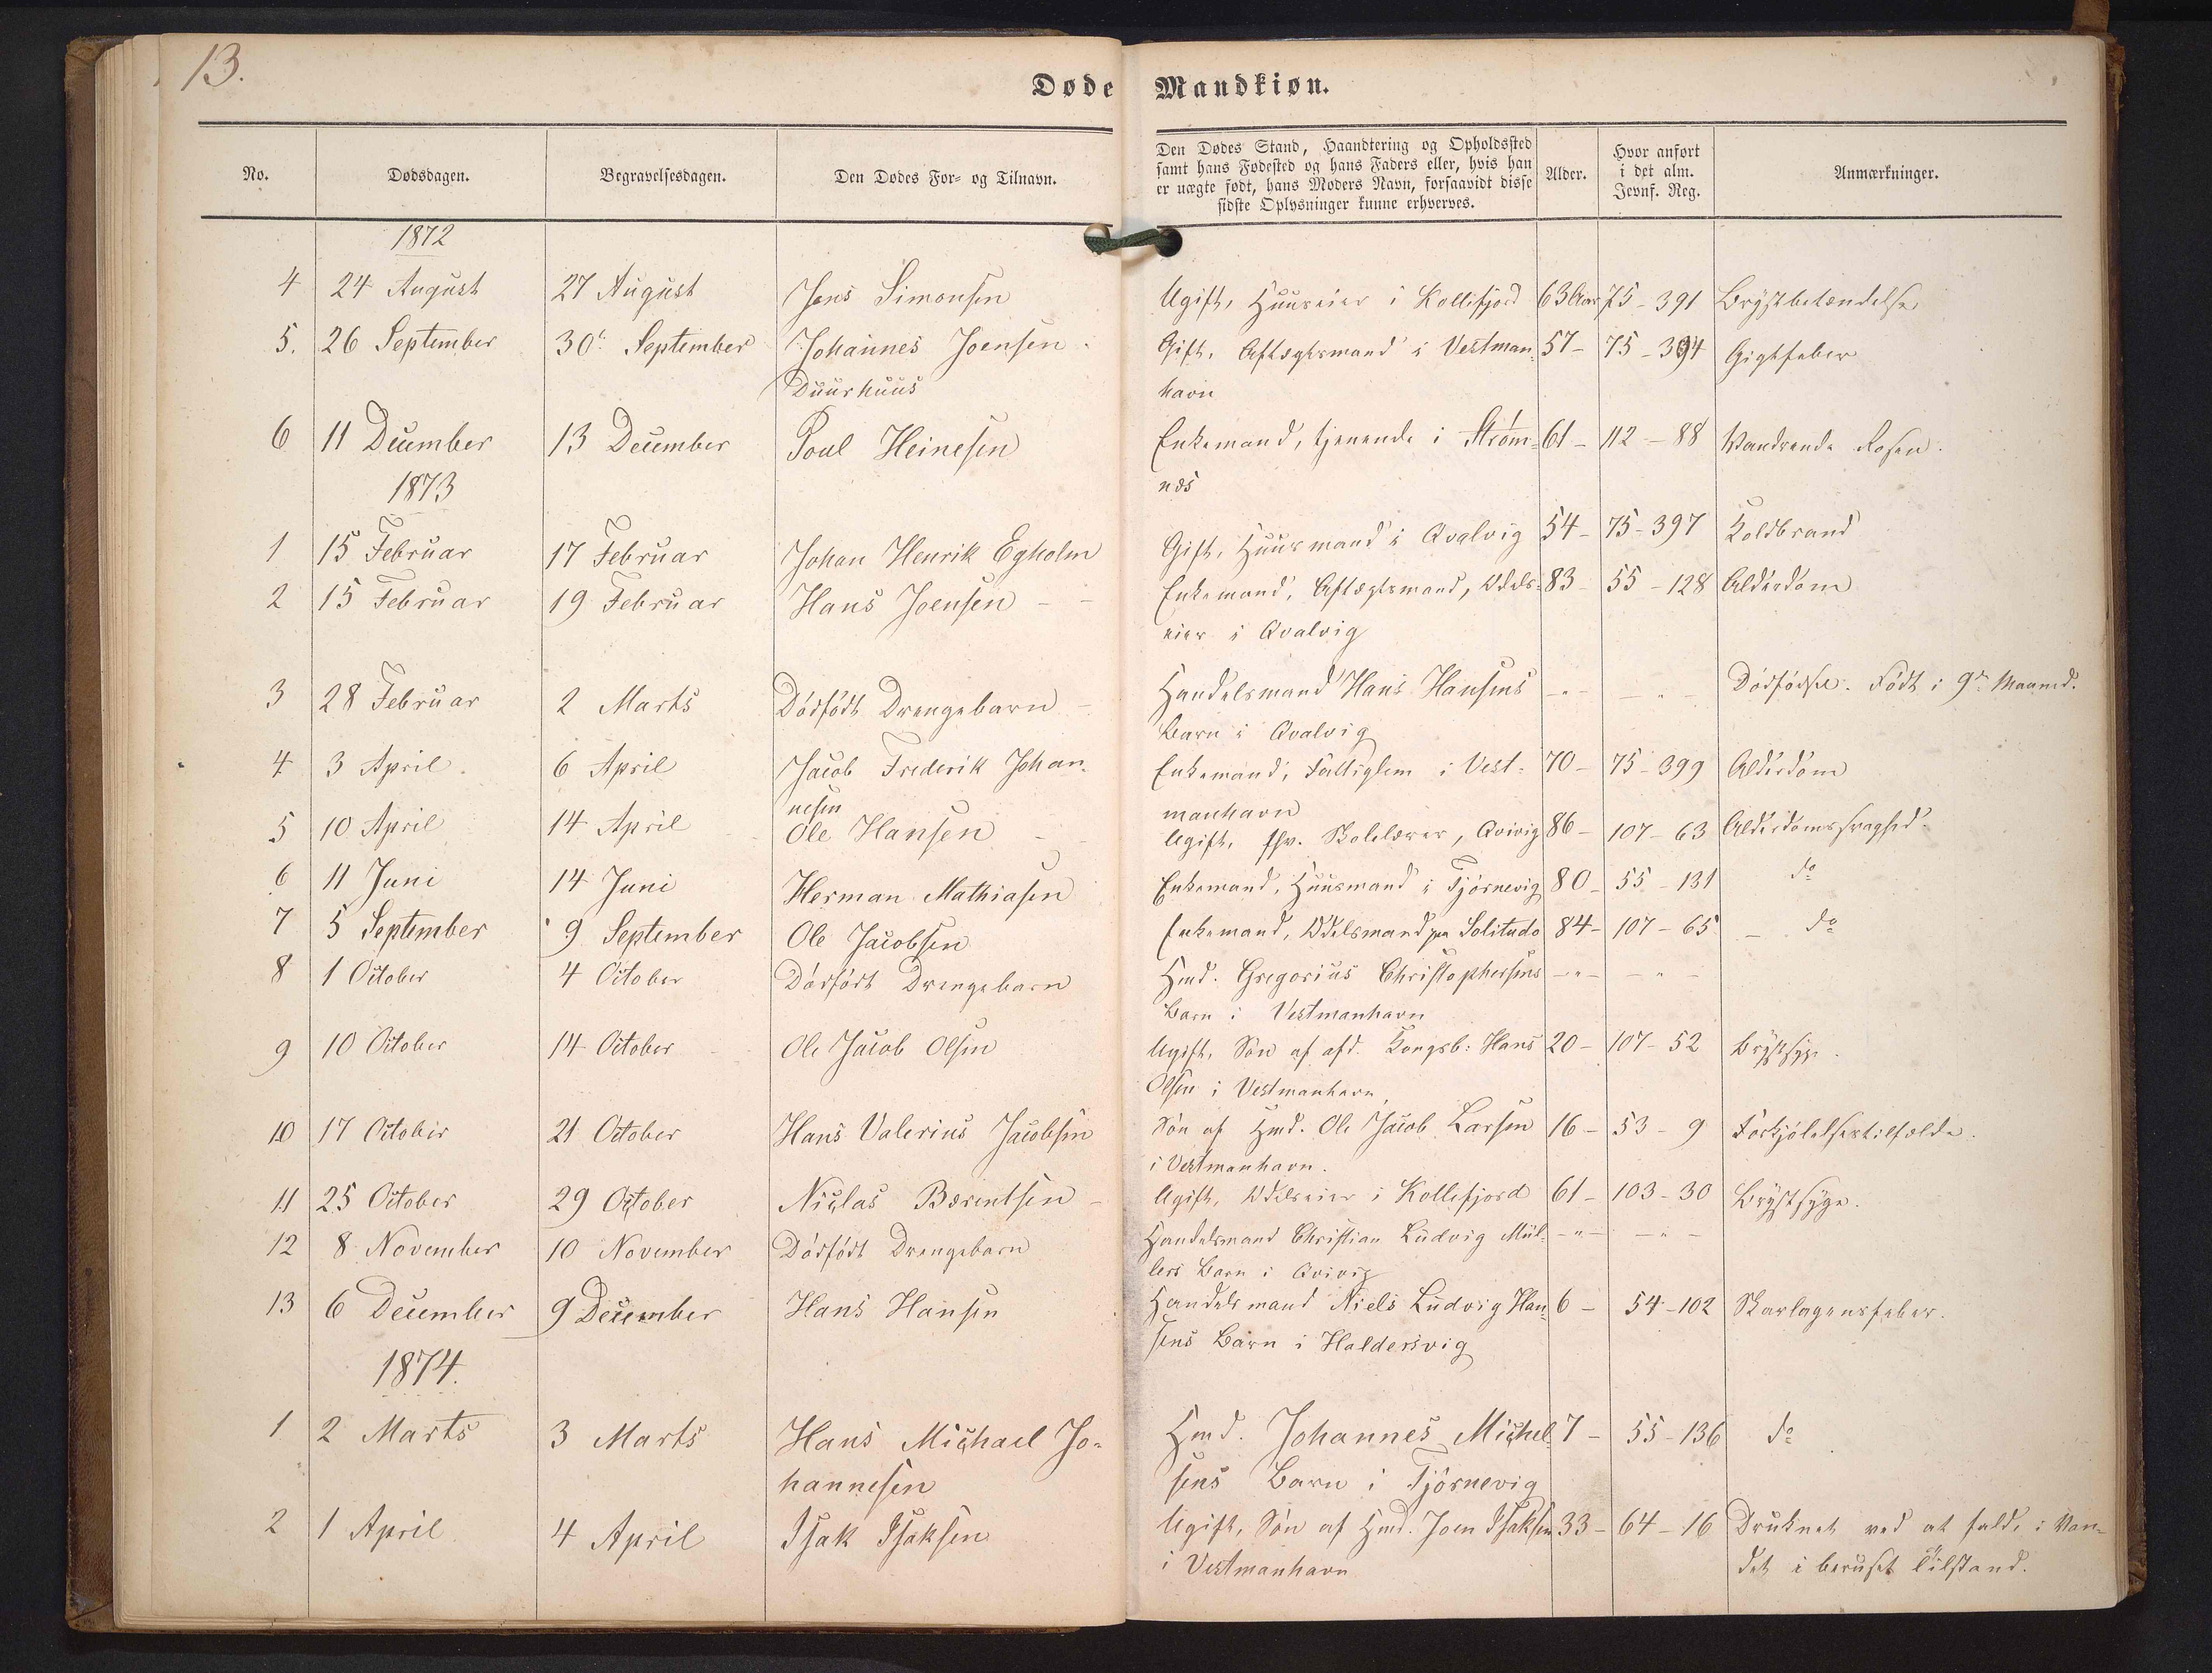 13.
Døde Mandkiøn.
No.
Dødsdagen.
Begravelsesdagen.
Den Dødes For- og Tilnavn.
Den Dødes Stand, Haandtering og Opholdssted
samt hans Fødested og hans Faders eller, hvis han
er uægte født, hans Moders Navn, forsaavidt disse
sidste Oplysninger kunne erhverves.
Alder.
Hvor anført
i det alm.
Jevnf. Reg.
Anmærkninger.
1872
4 24 August 27 August Jens Simonsen Ugift, Huuseier i Kollefjord 63 Aar 75-391 Brystbetændelse
5. 26 September 30' September Johannes Joensen Gift, Aftægtsmand i Vestman- 57- 75-394 Gigtfeber
Duurhuus havn
6 11 December 13 December Poul Heinesen Enkemand, tjenende i Strøm- 61- 112-88 Vandrende Rosen.
næs
1873
1 15 Februar 17 Februar Johan Henrik Egholm Gift, Huusmand i Qvalvig 54- 75-397 Koldbrand
2 15 Februar 19 Februar Hans Joensen - - Enkemand, Aftægtsmand, Odels- 83- 55-128 Alderdom
eier i Qvalvig
3 28 Februar 2 Marts Dødfødt Drengebarn - Handelsmand Hans Hansens -"- -"- Dødfødsel. Født i 9de Maaned.
Barn i Qvalvig
4 3 April. 6 April Jacob Frederik Johan- Enkemand, Fattiglem i Vest- 70- 75-399 Alderdom
nesen manhavn
5 10 April 14 April Ole Hansen - Ugift, fhv. Skolelærer, Qvivig 86- 107-63 Alderdomssvaghed.
6 11 Juni 14 Juni Herman Mathiasen Enkemand, Huusmand i Tjörnevig 80- 55-131 do
7 5 September 9 September Ole Jacobsen Enkemand, Odelsmand paa Solitudo 84- 107-65 - do
8 1 October 4 October Dødfødt Drengebarn Hmd. Gregorius Christophersens -"- -"-
Barn i Vestmanhavn
9 10 October 14 October Ole Jacob Olsen Ugift, Søn af afd. Kongsb: Hans 20- 107-52 Brystsyge.
Olsen i Vestmanhavn
10 17 October 21 October Hans Valerius Jacobsen Søn af Hmd. Ole Jacob Larsen 16- 53-9 Forkjølelsestilfælde.
i Vestmanhavn.
11 25 October 29 October Niclas Bærentsen - Ugift, Odelseier i Kollefjord 61- 103-30 Brystsyge.
12 8 November 10 November Dødfødt Drengebarn Handelsmand Christian Ludvig Mül- -"- -"-
lers Barn i Qvivig
13 6 December 9 December Hans Hansen Handelsmand Niels Ludvig Han- 6- 54-102 Skarlagensfeber.
sens Barn i Haldersvig
1874.
1 2 Marts 3 Marts Hans Michael Jo- Hmd. Johannes Michel- 7- 55-136 do
hannesen sens Barn i Tjörnevig
2 1 April 4 April Isak Isaksen Ugift, Søn af Hmd. Joen Isaksen 33- 64-16 Druknet ved at falde i Van-
i Vestmanhavn det i beruset Tilstand.